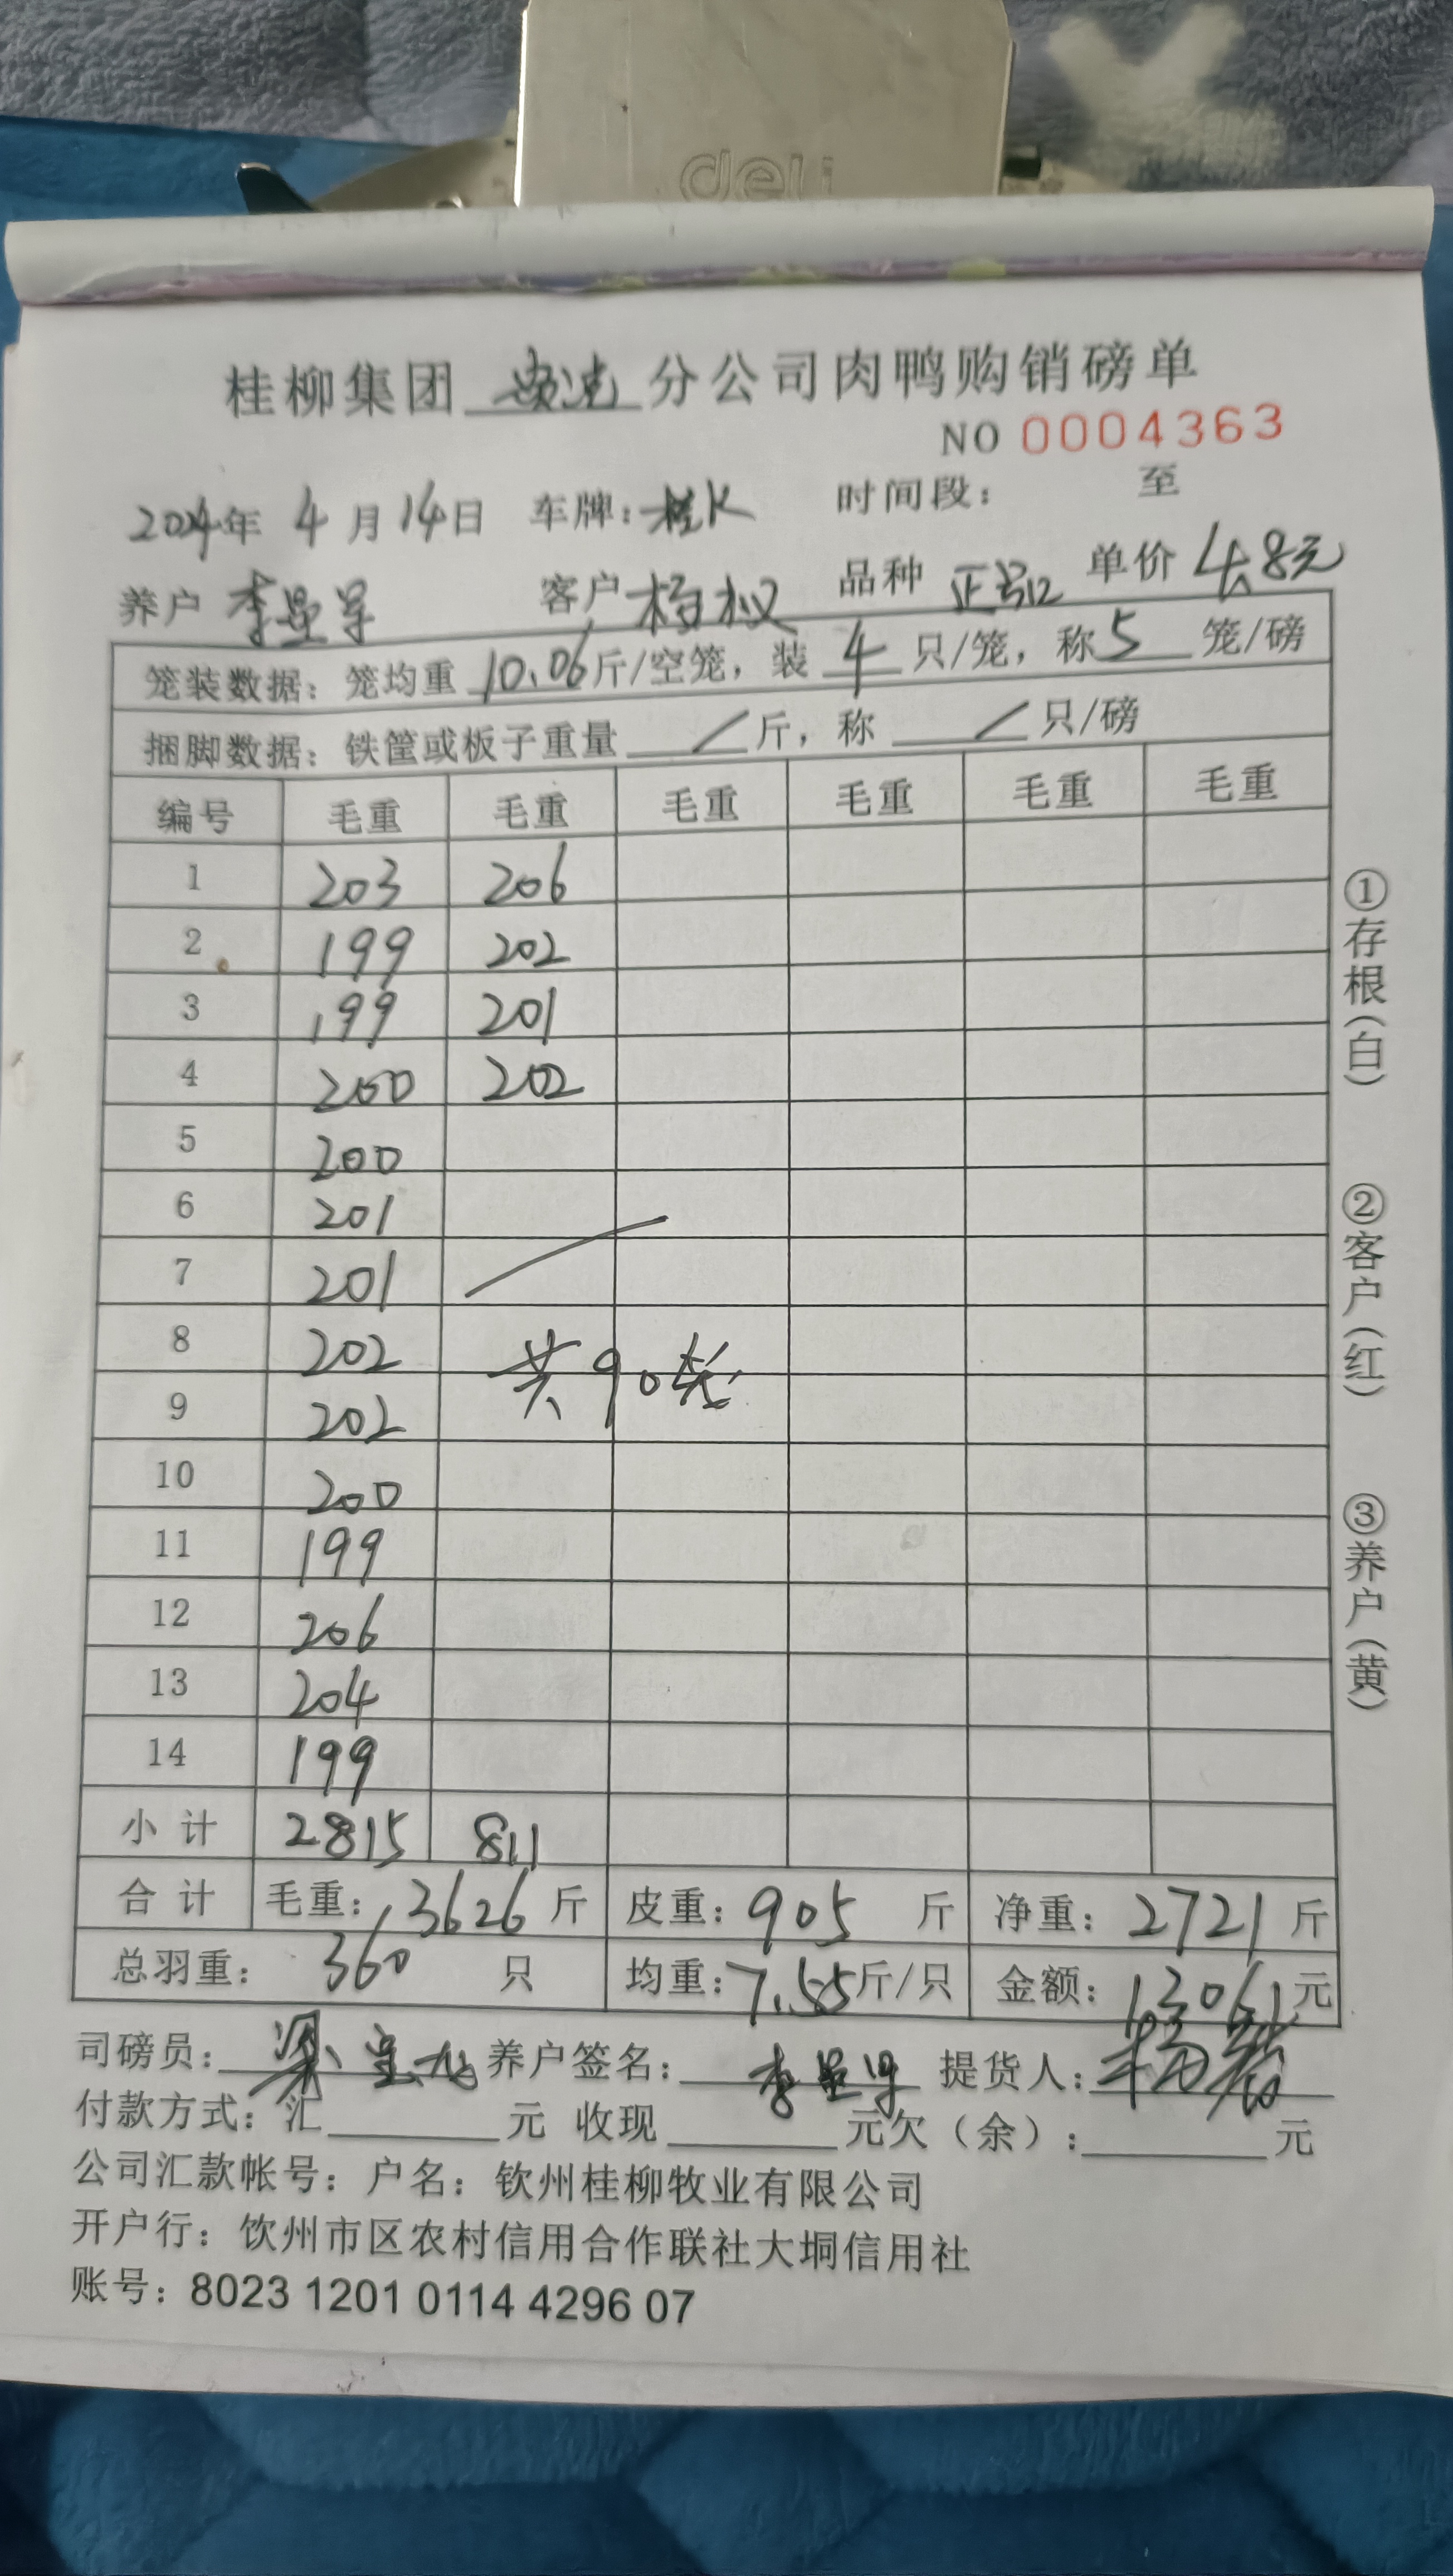 deli
桂柳集团 分公司肉鸭购销磅单
NO 0004363
2024年 4月14日 车牌: 时间段: 至
养户 李 客户 杨 品种 正 单价 4.8元
笼装数据: 笼均重 10.06斤/空笼, 装 4 只/笼, 称 5 笼/磅
捆脚数据: 铁筐或板子重量 / 斤, 称 / 只/磅
编号 毛重 毛重 毛重 毛重 毛重 毛重
1 203 206
2 199 202
3 199 201
4 200 202
5 200
6 201
7 201
8 202 共90笼
9 202
10 200
11 199
12 206
13 204
14 199
小计 2815 811
合计 毛重: 3626 斤 皮重: 905 斤 净重: 2721 斤
总羽重: 360 只 均重: 7.55斤/只 金额: 13061元
司磅员: 梁 养户签名: 李 提货人: 杨
付款方式: 汇 元 收现 元欠(余): 元
公司汇款帐号: 户名: 钦州桂柳牧业有限公司
开户行: 钦州市区农村信用合作联社大垌信用社
账号: 8023 1201 0114 4296 07
①存根(白)
②客户(红)
③养户(黄)